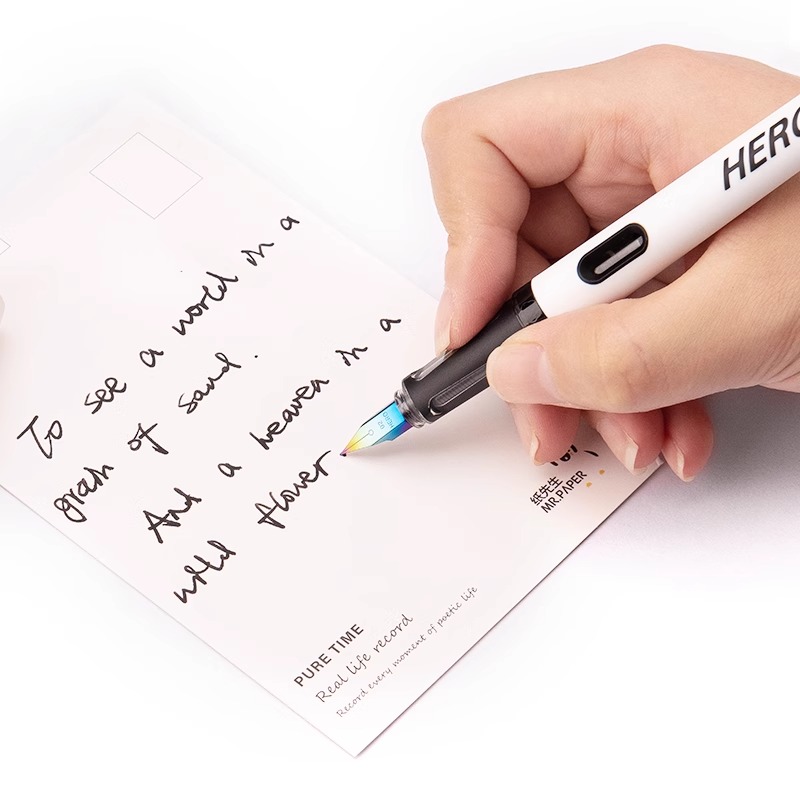 To see a world in a
grain of sand.
And a heaven in a
wild flower
HERO
纸先生
MR.PAPER
PURE TIME
Real life record
Record every moment of poetic life